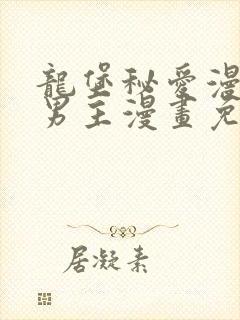 龍堡秘愛漫
男主漫畫免
居凝素